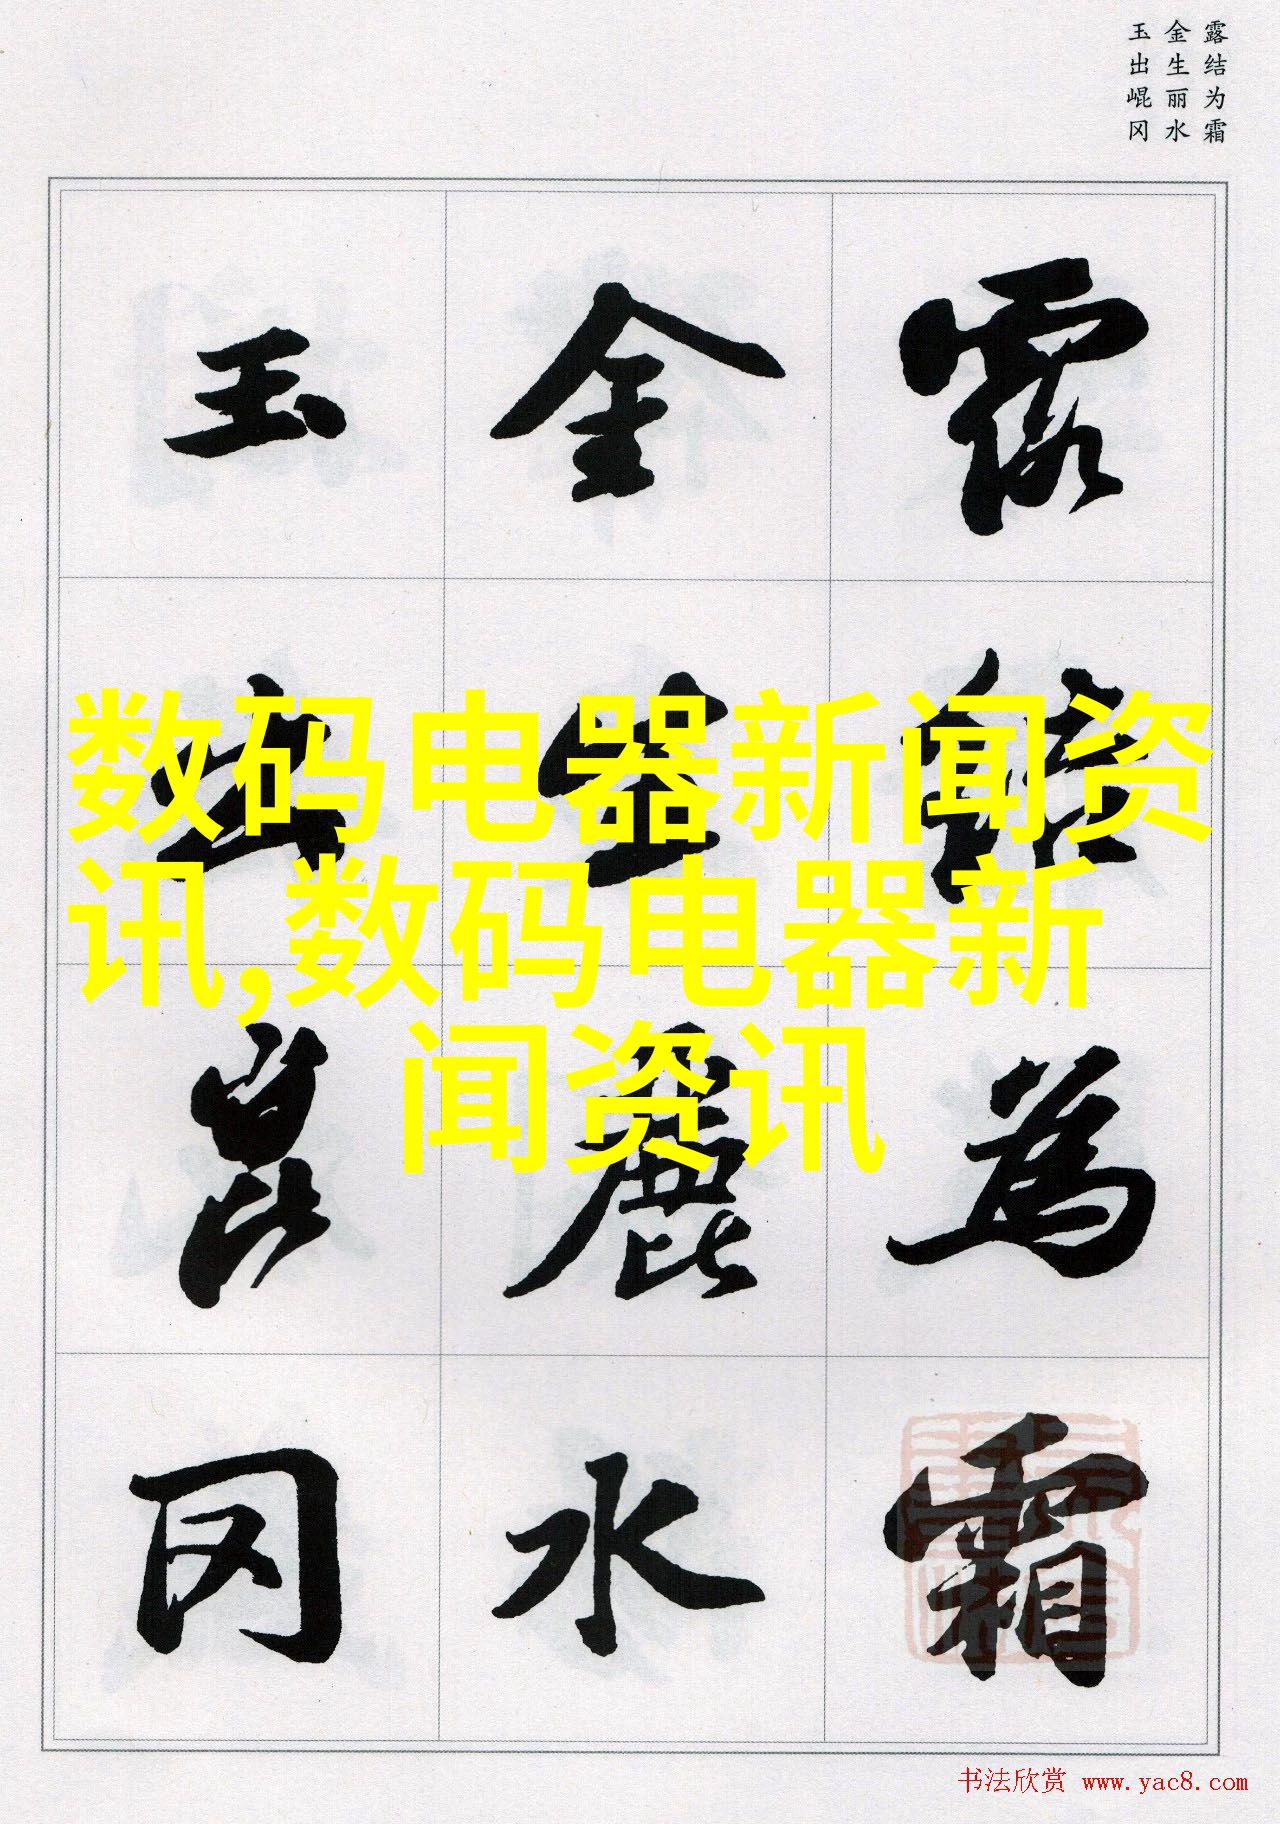 露结为霜
金生丽水
玉出崐冈
露結為霜
金生麗水
玉出崑冈
数码电器新闻资
讯,数码电器新
闻资讯
书法欣赏 www.yac8.com